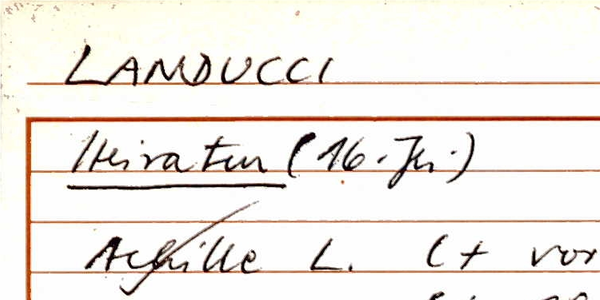 LANDUCCI
Heiraten (16. Jh.)
Achille L. († vor